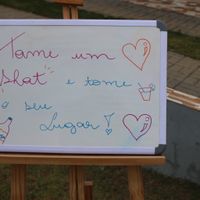 Tome um
Shot e tome
o seu
Lugar!